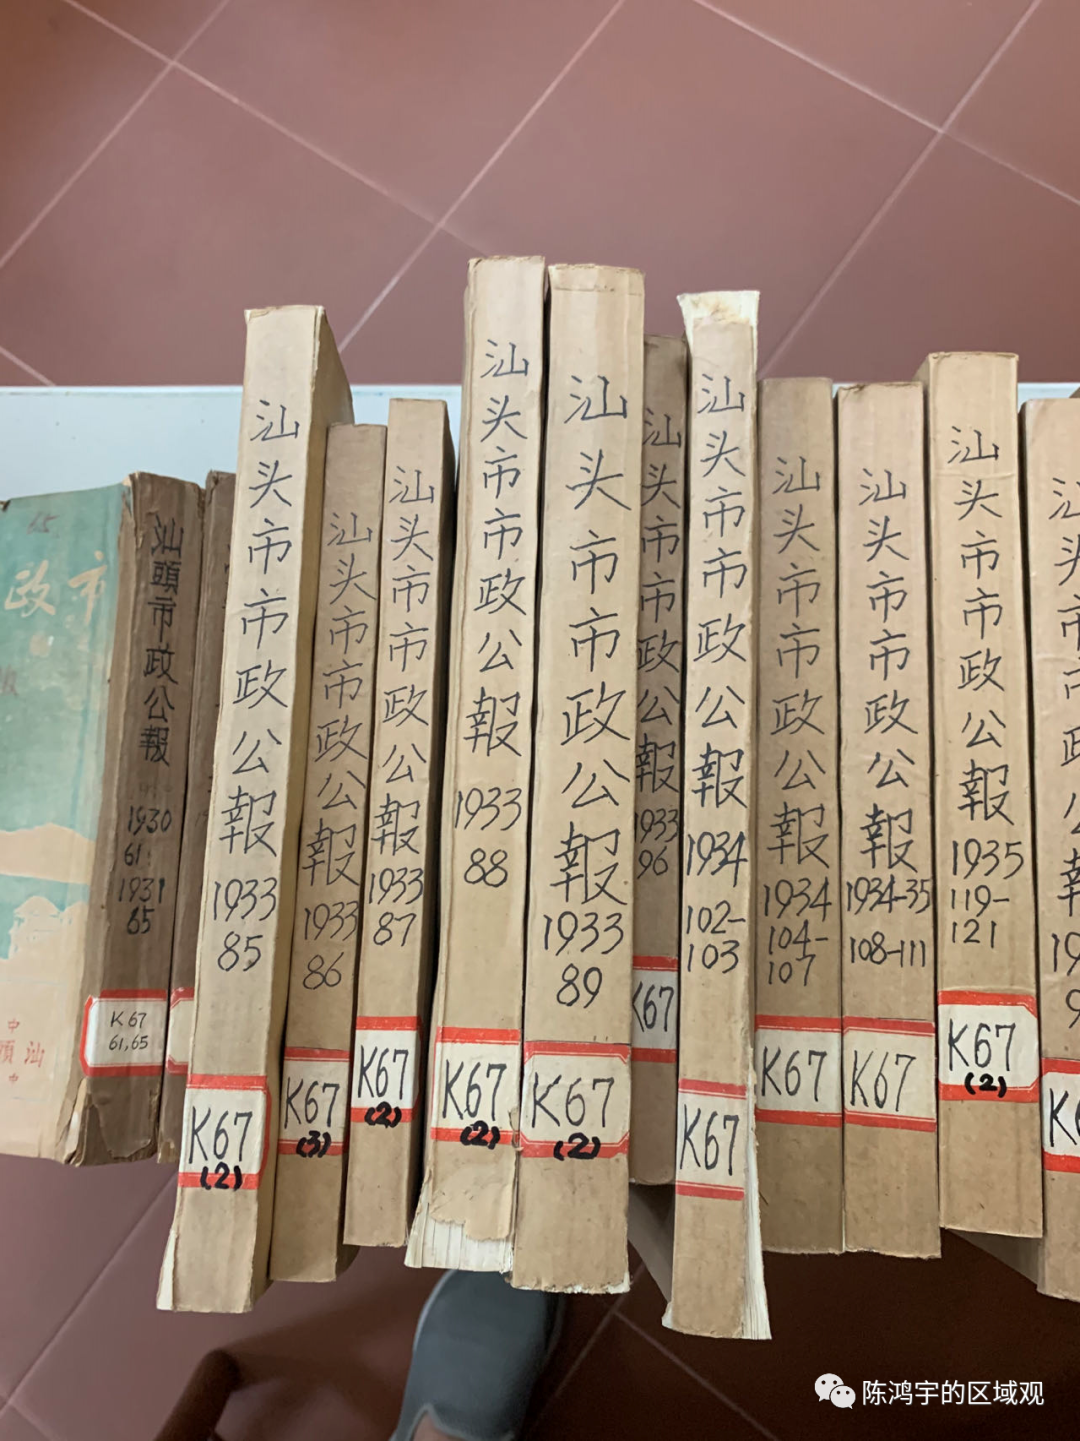 65
市政
汕頭
中
中
汕頭市政公報
1930
61
1931
65
K67
61,65
汕头市市政公報
1933
85
K67
(2)
汕头市市政公報
1933
86
K67
(3)
汕头市市政公報
1933
87
K67
(2)
汕头市市政公報
1933
88
K67
(2)
汕头市市政公報
1933
89
K67
(2)
汕头市市政公報
1933
96
K67
汕头市市政公報
1934
102-
103
K67
汕头市市政公報
1934
104-
107
K67
汕头市市政公報
1934-35
108-111
K67
汕头市市政公報
1935
119-
121
K67
(2)
汕头市市政公報
陈鸿宇的区域观